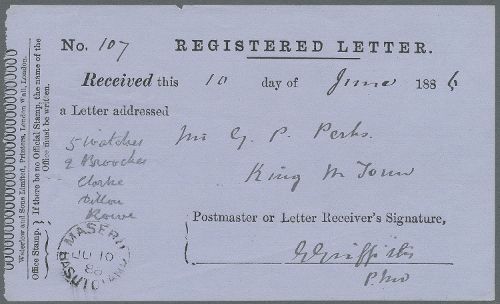 No. 107 REGISTERED LETTER.
Received this 10 day of June 1886
a Letter addressed
Mr G. P. Perks.
King W Town
5 Watches
2 Brooches
Clarke
Dillon
Rowe
Postmaster or Letter Receiver's Signature,
G Griffith
P.M.
MASERU
JU 10
86
BASUTOLAND
Waterlow and Sons Limited, Printers, London Wall, London.
Office Stamp. { If there be no Official Stamp, the name of the
Office must be written.